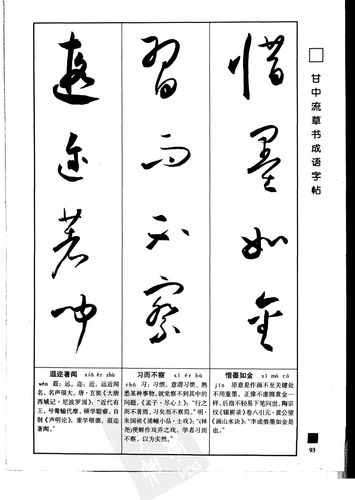 甘中流草书成语字帖
惜墨如金
習而不察
遐迩著闻
惜墨如金 xī mò rú
jīn 原意是作画不至关键处
不用重墨,正像不虚掷黄金一
样。后指不轻易下笔问世。陶宗
仪《辍耕录》卷八引元·黄公望
《画山水诀》:“李成惜墨如金是
也。”
习而不察 xí ér bù
chá 习:习惯。意谓习惯、熟
悉某种事物,就觉察不到其中的
问题。《孟子·尽心上》:“行之
而不著焉,习矣而不察焉。”明·
朱国祯《涌幢小品·士戏》:“(林
尧)便解作戏弄之戏,学者习而
不察,以为实然。”
遐迩著闻 xiá ěr zhù
wén 遐:远。迩:近。远近闻
名,名声很大。唐·玄奘《大唐
西域记·尼波罗国》:“近代有
王,号鸯输代摩,硕学聪睿,自
制《声明论》,重学敬德,遐迩
著闻。”
93